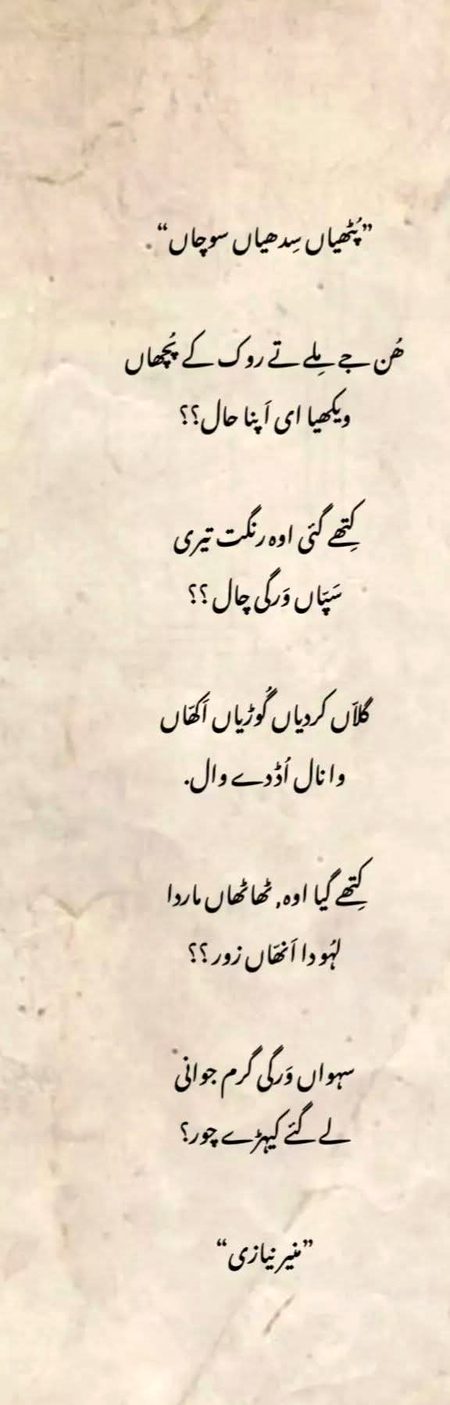 ”پُٹھیاں سِدھیاں سوچاں“.
ھُن جے مِلے تے روک کے پُچھاں
ویکھیا ای اَپنا حال؟؟
کِتھے گئی اوہ رنگت تیری
سَپّاں وَرگی چال ؟؟
گلاّں کردیاں گُوڑیاں اَکھّاں
وا نال اُڈدے وال.
کِتھے گیا اوہ, ٹھاٹھاں ماردا
لہُو دا اَنھّاں زور ؟؟
سہواں وَرگی گرم جوانی
لے گئے کیہڑے چور؟
”منیر نیازی“